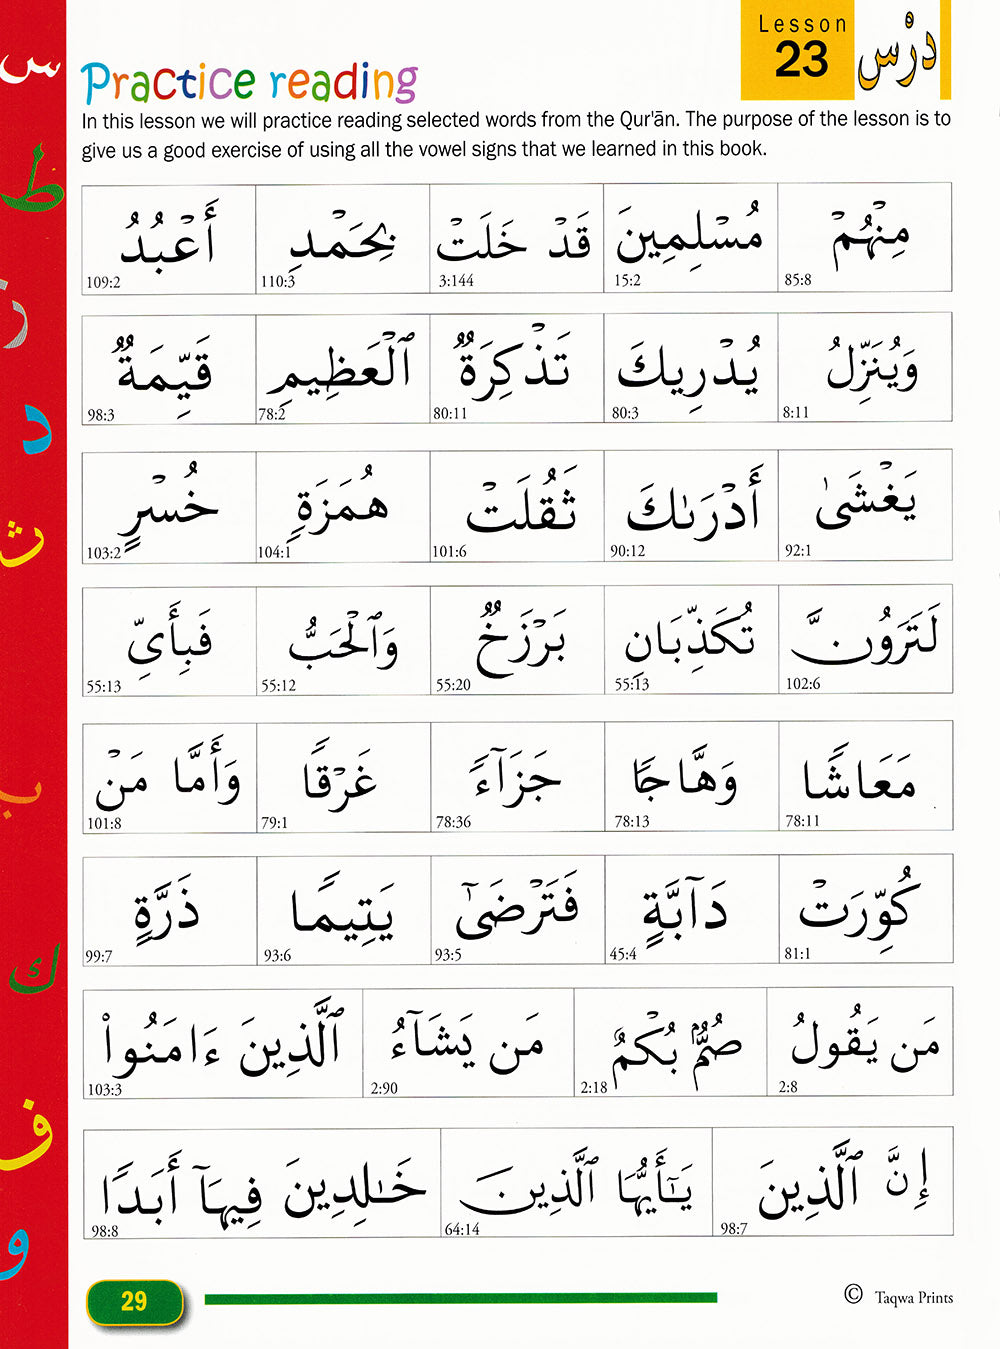 Lesson
23
دَرْس
Practice reading
In this lesson we will practice reading selected words from the Qur'ān. The purpose of the lesson is to
give us a good exercise of using all the vowel signs that we learned in this book.
مِنْهُمْ مُسْلِمِينَ قَدْ خَلَتْ بِحَمْدِ أَعْبُدُ
85:8 15:2 3:144 110:3 109:2
وَيُنَزِّلُ يُدْرِيكَ تَذْكِرَةٌ ٱلْعَظِيمِ قَيِّمَةٌ
8:11 80:3 80:11 78:2 98:3
يَغْشَىٰ أَدْرَىٰكَ ثَقُلَتْ هُمَزَةٍ خُسْرٍ
92:1 90:12 101:6 104:1 103:2
لَتَرَوُنَّ تُكَذِّبَانِ بَرْزَخٌ وَٱلْحَبُّ فَبِأَىِّ
102:6 55:13 55:20 55:12 55:13
مَعَاشًا وَهَّاجًا جَزَآءً غَرْقًا وَأَمَّا مَنْ
78:11 78:13 78:36 79:1 101:8
كُوِّرَتْ دَآبَّةٍ فَتَرْضَىٰٓ يَتِيمًا ذَرَّةٍ
81:1 45:4 93:5 93:6 99:7
مَن يَقُولُ صُمٌّۢ بُكْمٌ مَن يَشَآءُ ٱلَّذِينَ ءَامَنُوا۟
2:8 2:18 2:90 103:3
إِنَّ ٱلَّذِينَ يَـٰٓأَيُّهَا ٱلَّذِينَ خَـٰلِدِينَ فِيهَآ أَبَدًا
98:7 64:14 98:8
29
© Taqwa Prints
س
ط
ز
د
ث
ب
ك
ف
و